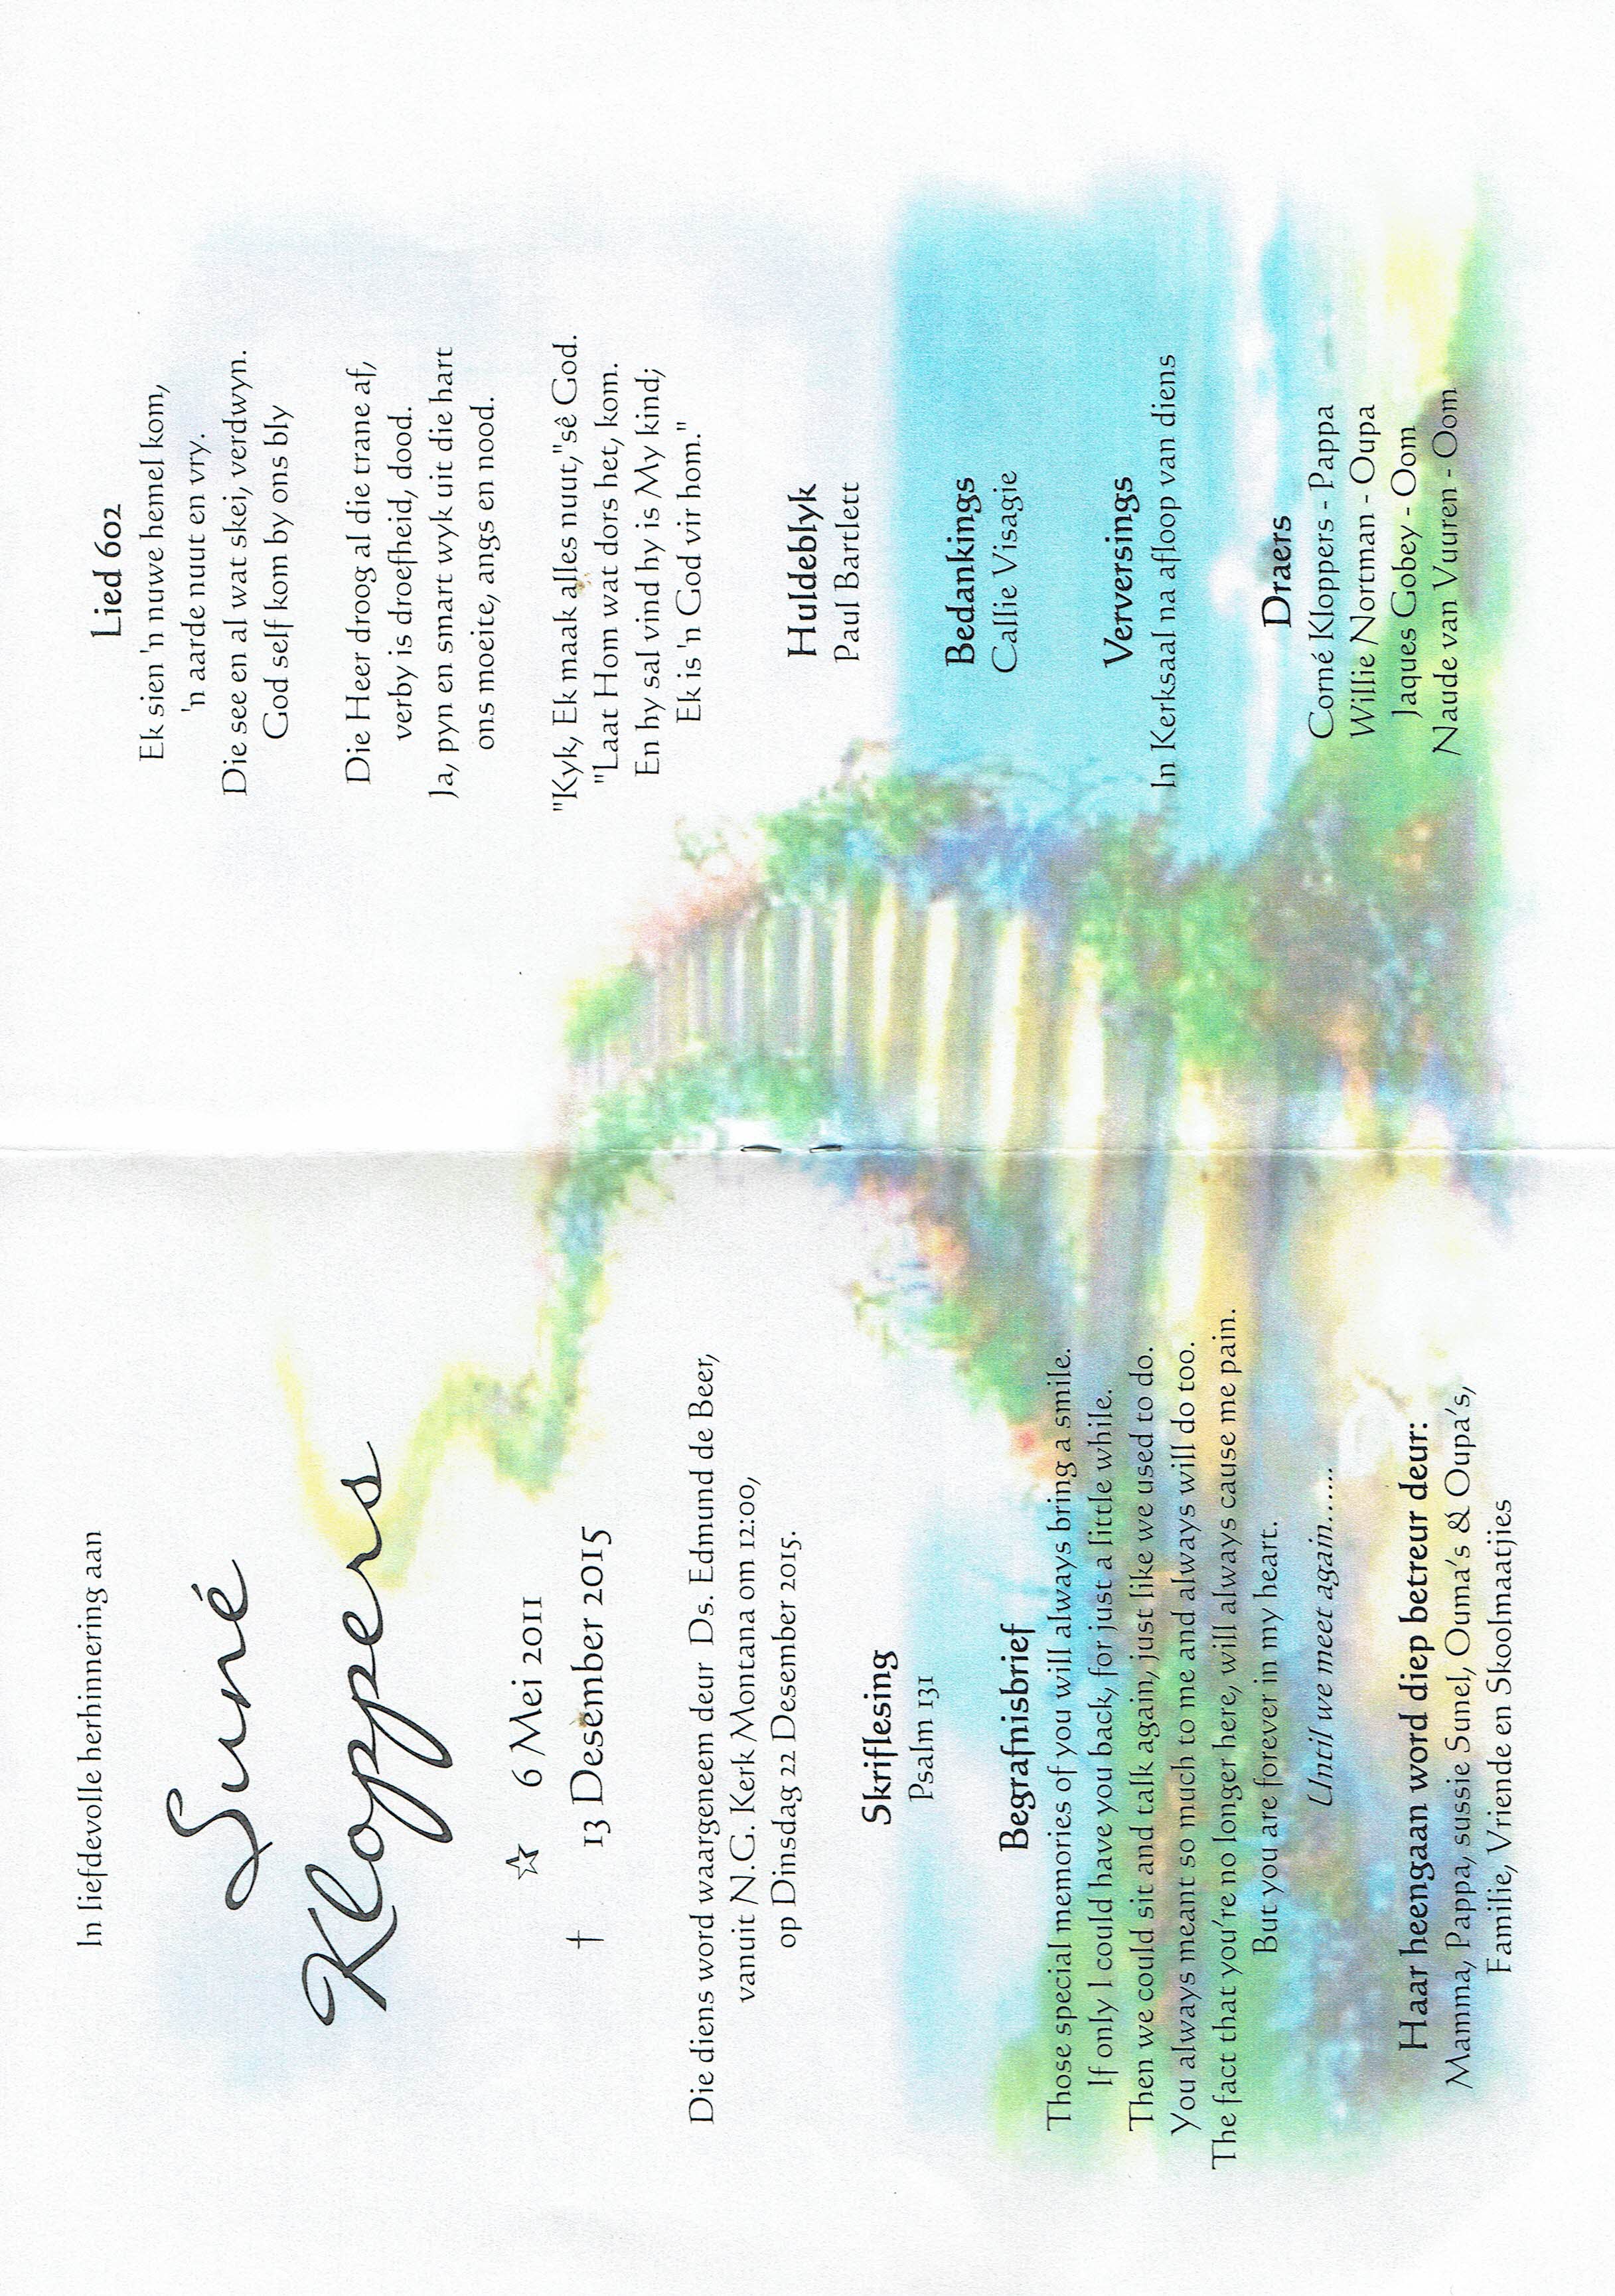 In liefdevolle herhinnering aan
Suné
Kloppers
☆ 6 Mei 2011
† 13 Desember 2015
Die diens word waargeneem deur Ds. Edmund de Beer,
vanuit N.G. Kerk Montana om 12:00,
op Dinsdag 22 Desember 2015.
Skriflesing
Psalm 131
Begrafnisbrief
Those special memories of you will always bring a smile.
If only I could have you back, for just a little while.
Then we could sit and talk again, just like we used to do.
You always meant so much to me and always will do too.
The fact that you're no longer here, will always cause me pain.
But you are forever in my heart.
Until we meet again......
Haar heengaan word diep betreur deur:
Mamma, Pappa, sussie Sunel, Ouma's & Oupa's,
Familie, Vriende en Skoolmaatjies
Lied 602
Ek sien 'n nuwe hemel kom,
'n aarde nuut en vry.
Die see en al wat skei, verdwyn.
God self kom by ons bly
Die Heer droog al die trane af,
verby is droefheid, dood.
Ja, pyn en smart wyk uit die hart
ons moeite, angs en nood.
"Kyk, Ek maak alles nuut,"sê God.
"Laat Hom wat dors het, kom.
En hy sal vind hy is My kind;
Ek is 'n God vir hom."
Huldeblyk
Paul Bartlett
Bedankings
Callie Visagie
Verversings
In Kerksaal na afloop van diens
Draers
Corné Kloppers - Pappa
Willie Nortman - Oupa
Jaques Gobey - Oom
Naude van Vuuren - Oom